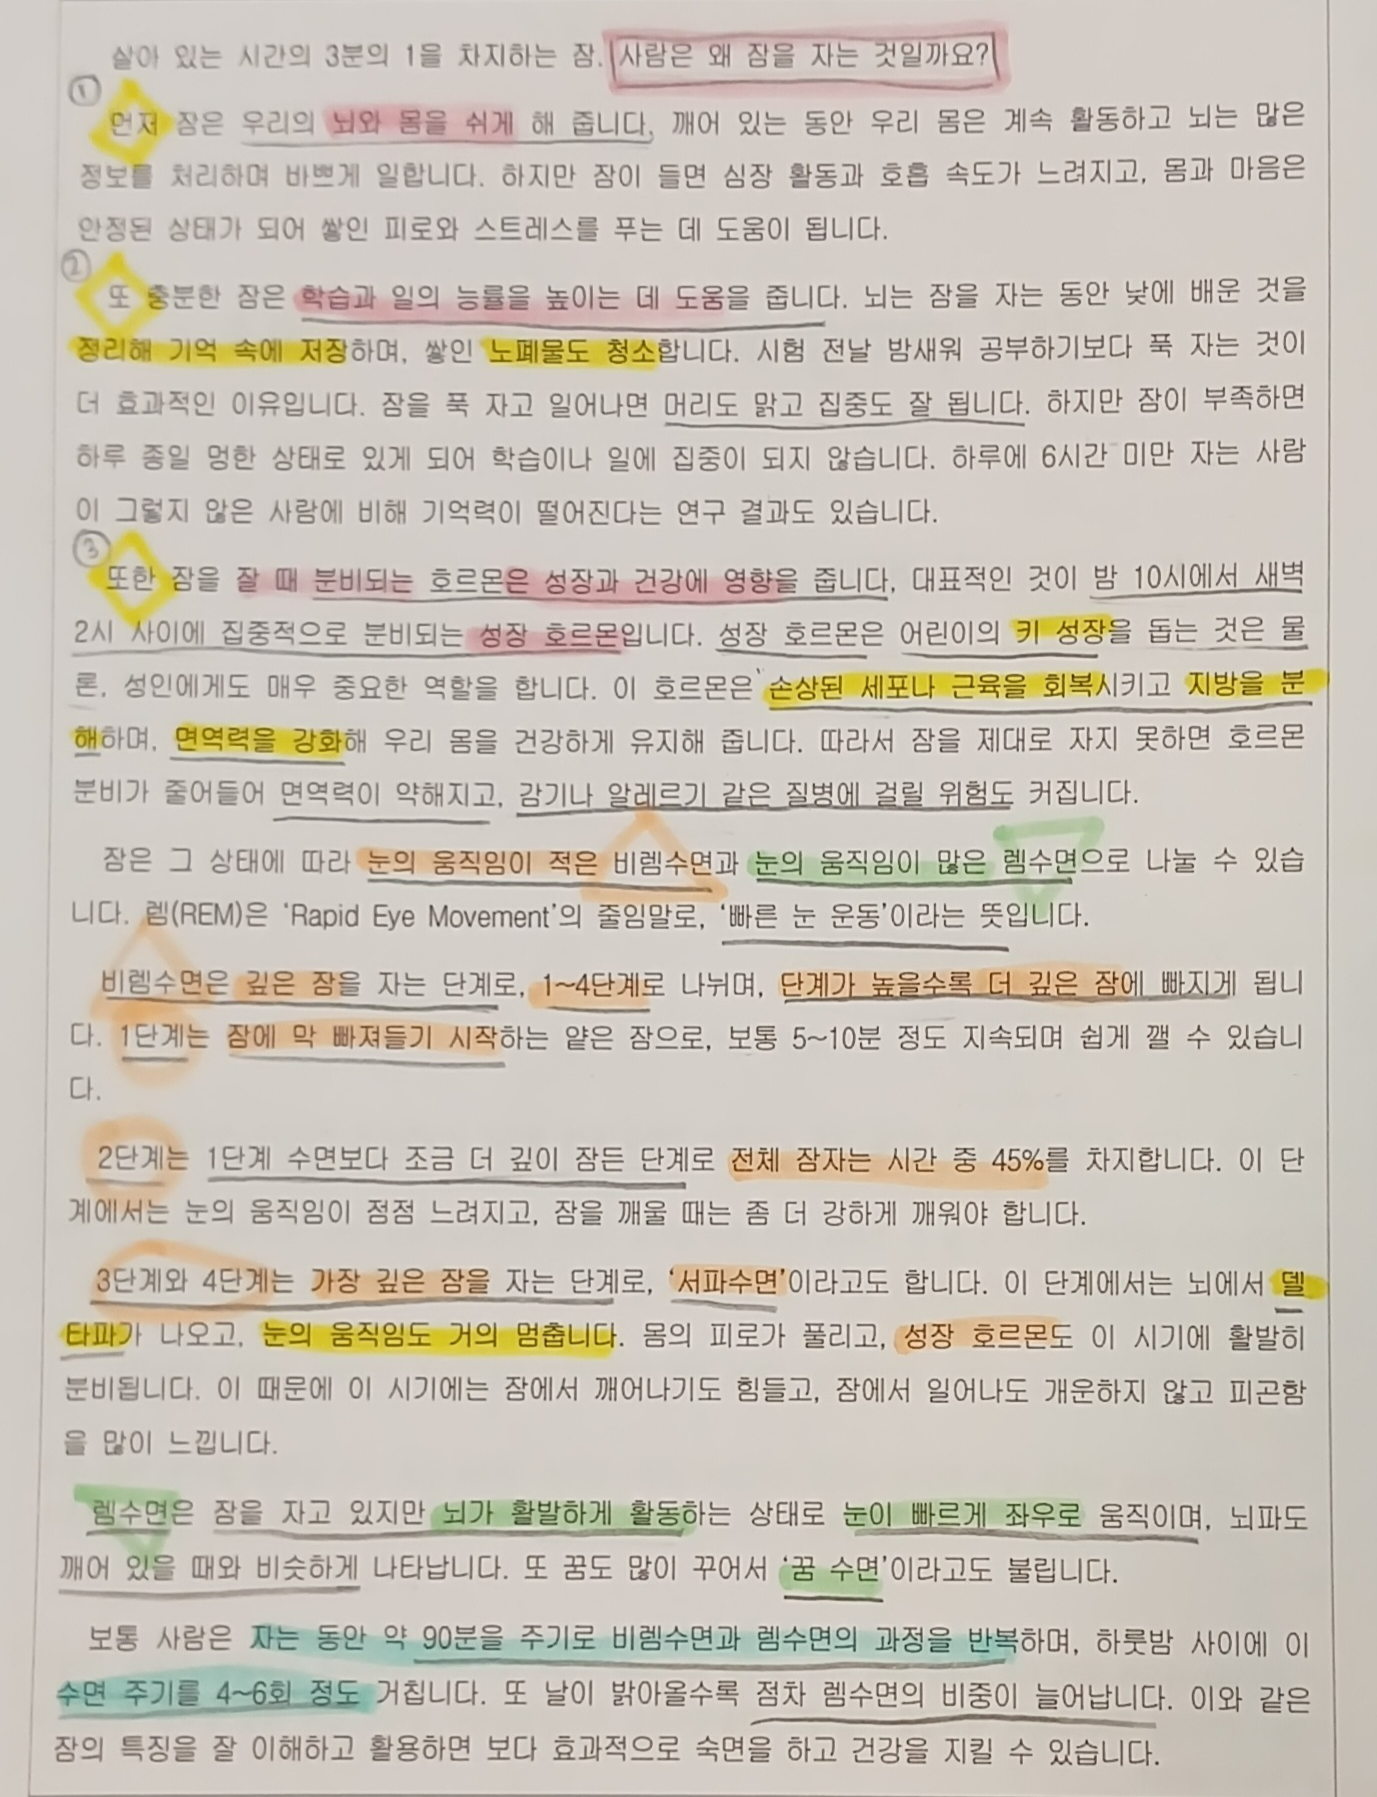 살아 있는 시간의 3분의 1을 차지하는 잠. 사람은 왜 잠을 자는 것일까요?
①
먼저 잠은 우리의 뇌와 몸을 쉬게 해 줍니다. 깨어 있는 동안 우리 몸은 계속 활동하고 뇌는 많은
정보를 처리하며 바쁘게 일합니다. 하지만 잠이 들면 심장 활동과 호흡 속도가 느려지고, 몸과 마음은
안정된 상태가 되어 쌓인 피로와 스트레스를 푸는 데 도움이 됩니다.
②
또 충분한 잠은 학습과 일의 능률을 높이는 데 도움을 줍니다. 뇌는 잠을 자는 동안 낮에 배운 것을
정리해 기억 속에 저장하며, 쌓인 노폐물도 청소합니다. 시험 전날 밤새워 공부하기보다 푹 자는 것이
더 효과적인 이유입니다. 잠을 푹 자고 일어나면 머리도 맑고 집중도 잘 됩니다. 하지만 잠이 부족하면
하루 종일 멍한 상태로 있게 되어 학습이나 일에 집중이 되지 않습니다. 하루에 6시간 미만 자는 사람
이 그렇지 않은 사람에 비해 기억력이 떨어진다는 연구 결과도 있습니다.
③
또한 잠을 잘 때 분비되는 호르몬은 성장과 건강에 영향을 줍니다, 대표적인 것이 밤 10시에서 새벽
2시 사이에 집중적으로 분비되는 성장 호르몬입니다. 성장 호르몬은 어린이의 키 성장을 돕는 것은 물
론, 성인에게도 매우 중요한 역할을 합니다. 이 호르몬은 손상된 세포나 근육을 회복시키고 지방을 분
해하며, 면역력을 강화해 우리 몸을 건강하게 유지해 줍니다. 따라서 잠을 제대로 자지 못하면 호르몬
분비가 줄어들어 면역력이 약해지고, 감기나 알레르기 같은 질병에 걸릴 위험도 커집니다.
잠은 그 상태에 따라 눈의 움직임이 적은 비렘수면과 눈의 움직임이 많은 렘수면으로 나눌 수 있습
니다. 렘(REM)은 ‘Rapid Eye Movement’의 줄임말로, ‘빠른 눈 운동’이라는 뜻입니다.
비렘수면은 깊은 잠을 자는 단계로, 1~4단계로 나뉘며, 단계가 높을수록 더 깊은 잠에 빠지게 됩니
다. 1단계는 잠에 막 빠져들기 시작하는 얕은 잠으로, 보통 5~10분 정도 지속되며 쉽게 깰 수 있습니
다.
2단계는 1단계 수면보다 조금 더 깊이 잠든 단계로 전체 잠자는 시간 중 45%를 차지합니다. 이 단
계에서는 눈의 움직임이 점점 느려지고, 잠을 깨울 때는 좀 더 강하게 깨워야 합니다.
3단계와 4단계는 가장 깊은 잠을 자는 단계로, ‘서파수면’이라고도 합니다. 이 단계에서는 뇌에서 델
타파가 나오고, 눈의 움직임도 거의 멈춥니다. 몸의 피로가 풀리고, 성장 호르몬도 이 시기에 활발히
분비됩니다. 이 때문에 이 시기에는 잠에서 깨어나기도 힘들고, 잠에서 일어나도 개운하지 않고 피곤함
을 많이 느낍니다.
렘수면은 잠을 자고 있지만 뇌가 활발하게 활동하는 상태로 눈이 빠르게 좌우로 움직이며, 뇌파도
깨어 있을 때와 비슷하게 나타납니다. 또 꿈도 많이 꾸어서 ‘꿈 수면’이라고도 불립니다.
보통 사람은 자는 동안 약 90분을 주기로 비렘수면과 렘수면의 과정을 반복하며, 하룻밤 사이에 이
수면 주기를 4~6회 정도 거칩니다. 또 날이 밝아올수록 점차 렘수면의 비중이 늘어납니다. 이와 같은
잠의 특징을 잘 이해하고 활용하면 보다 효과적으로 숙면을 하고 건강을 지킬 수 있습니다.